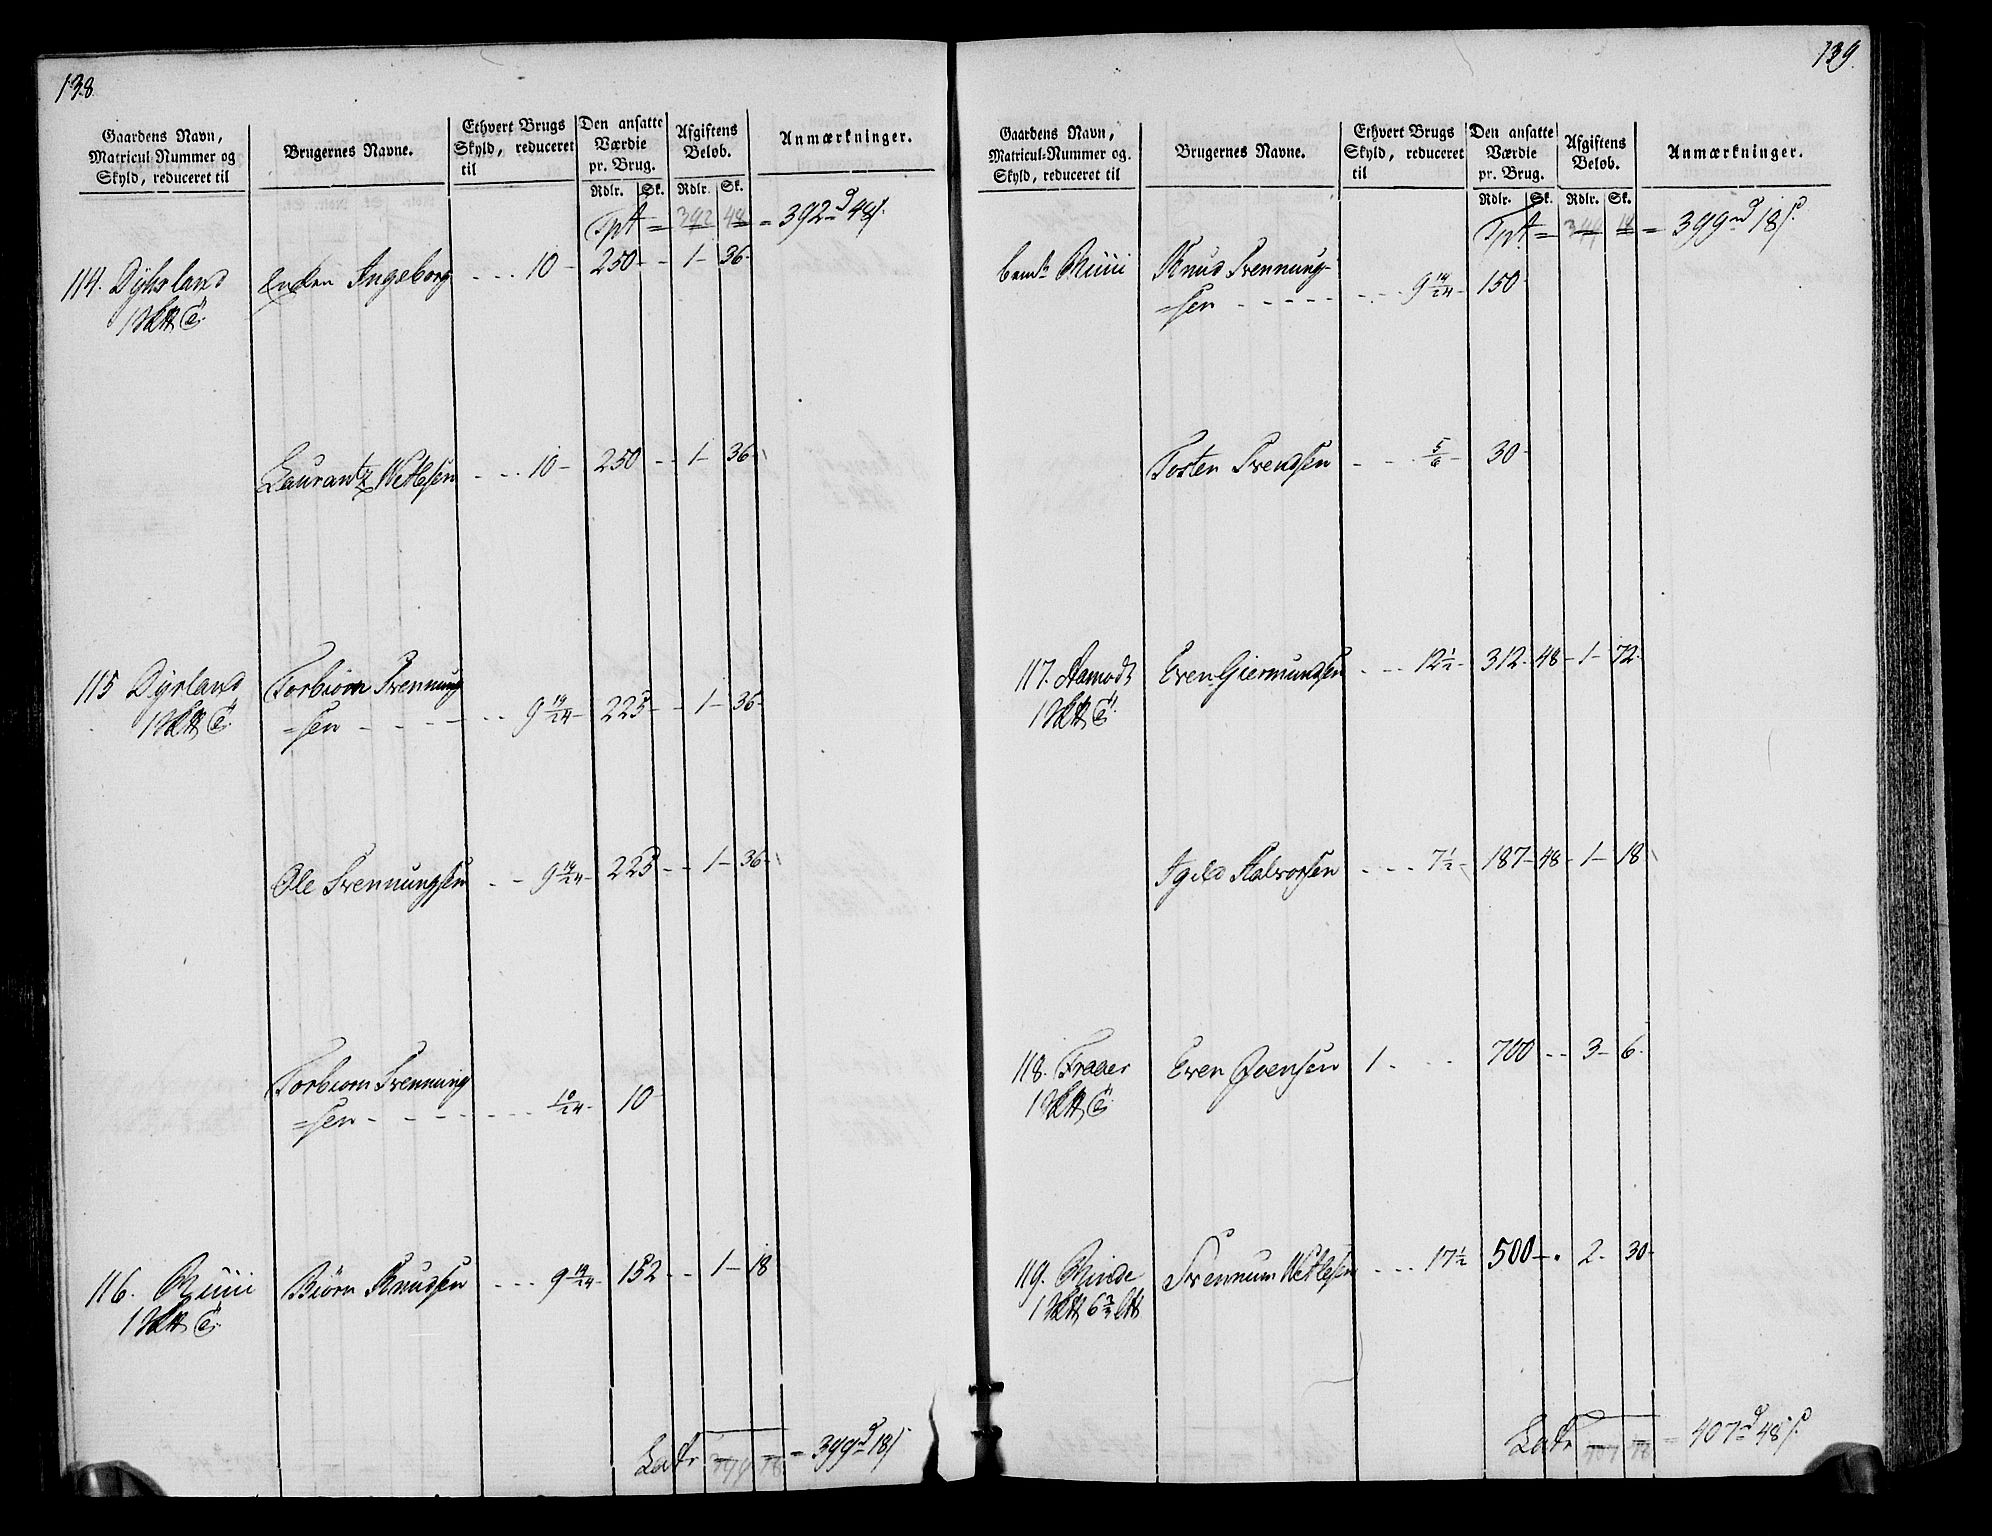 138.
Gaardens Navn,
Matricul-Nummer og
Skyld, reduceret til
Brugernes Navne.
Ethvert Brugs
Skyld, reduceret
til
Den ansatte
Værdie
pr. Brug.
Rdlr. Sk.
Afgiftens
Beløb.
Rdlr. Sk.
Anmærkninger.
Tpt = 392 48 = 392 d 48 s.
114. Dyhsland Enken Ingeborg - - - 10 - 250 - - 1 - 36 -
1
Laurantz Wetlesen - - - 10 - 250 - - 1 - 36 -
115 Dyrland Torbiorn Svennung
1 =sen - - - - - 9 14/24 - 225 - - 1 - 36 -
Ole Svennungsen - - 9 14/24 - 225 - - 1 - 36 -
Torbiorn Svennung
=sen - - - - - - - 10/24 - 10 -
116. Biørn Knudsen - - - 9 14/24 - 152 - - 1 - 18
1
Latr = 399 d 18 s.
139.
Gaardens Navn,
Matricul-Nummer og
Skyld, reduceret til
Brugernes Navne.
Ethvert Brugs
Skyld, reduceret
til
Den ansatte
Værdie
pr. Brug.
Rdlr. Sk.
Afgiftens
Beløb.
Rdlr. Sk.
Anmærkninger.
Tpt = 18 = 399 d 18 s.
Knud Svennung-
=sen - - - - - - - 9 14/24 - 150 -
Tosten Svendsen - - - 5/6 - 30 -
117. Aamodt Even Giermundsen - - - 12 1/2 - 312 - 48 - 1 - 72 -
1
Halvorsen - - - 7 1/2 - 187 - 48 - 1 - 18
118. Fraaer Even Øvensen 1 - - - 700 - - 3 - 6 -
1
119. Minde Svennum Wetlesen - - - 17 1/2 500 - - 2 - 30 -
1 6 2/3
Latr = 407 d 48 s.